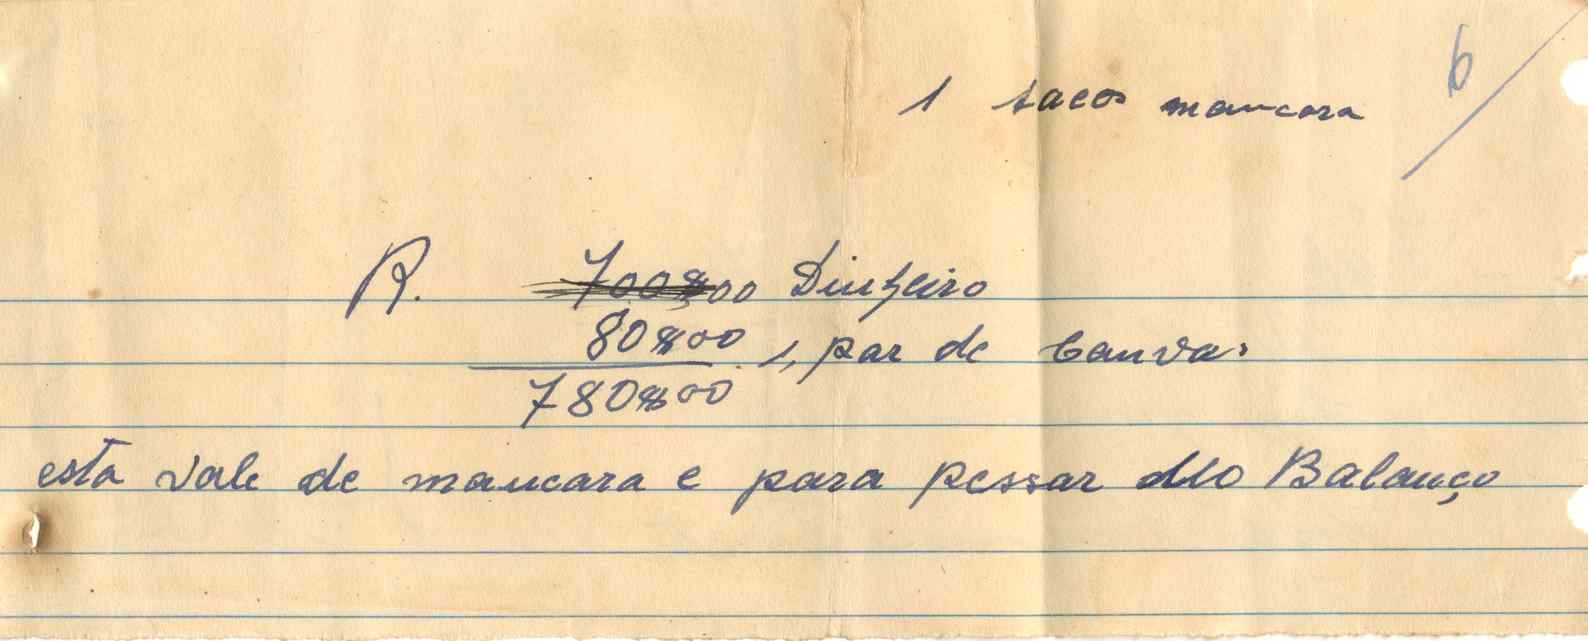 6
1 sacos mancara
R. 700$00 Dinheiro
80$00 1, par de
780$00
esta vale de mancara e para pessar no Balanço